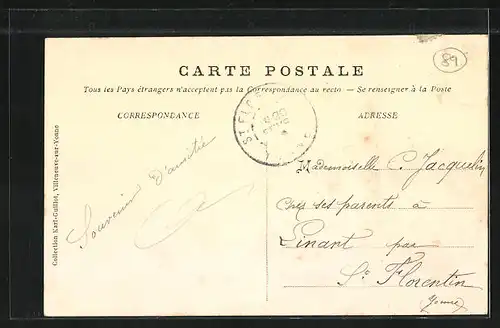 89
CARTE POSTALE
Tous les Pays étrangers n'acceptent pas la Correspondance au recto — Se renseigner à la Poste
CORRESPONDANCE
ADRESSE
Souvenir D'amitié
Mademoiselle C. Jacquelin
Chez ses parents à
Pinant par
St Florentin
Yonne
Collection Karl-Guillot, Villeneuve-sur-Yonne